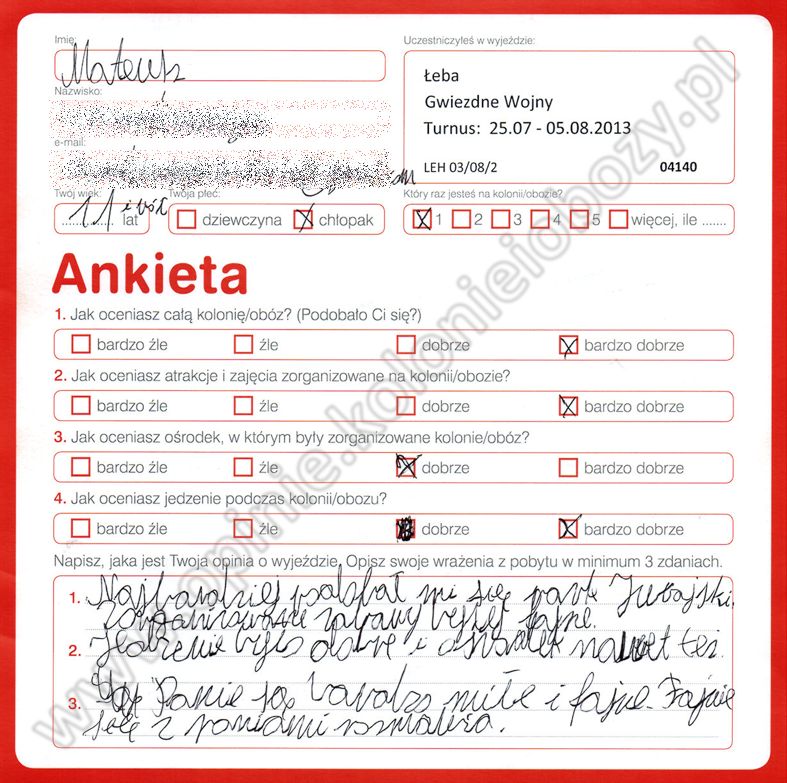 Imię:
Mateusz
Nazwisko:
e-mail:
Twój wiek:
11 i pół lat
Twoja płeć:
dziewczyna chłopak
Uczestniczyłeś w wyjeździe:
Łeba
Gwiezdne Wojny
Turnus: 25.07 - 05.08.2013
LEH 03/08/2 04140
Który raz jesteś na kolonii/obozie?
1 2 3 4 5 więcej, ile .......
Ankieta
1. Jak oceniasz całą kolonię/obóz? (Podobało Ci się?)
bardzo źle źle dobrze bardzo dobrze
2. Jak oceniasz atrakcje i zajęcia zorganizowane na kolonii/obozie?
bardzo źle źle dobrze bardzo dobrze
3. Jak oceniasz ośrodek, w którym były zorganizowane kolonie/obóz?
bardzo źle źle dobrze bardzo dobrze
4. Jak oceniasz jedzenie podczas kolonii/obozu?
bardzo źle źle dobrze bardzo dobrze
Napisz, jaka jest Twoja opinia o wyjeździe. Opisz swoje wrażenia z pobytu w minimum 3 zdaniach.
1. Najbardziej podobał mi się park Jurajski.
zabawy fajne.
2. było dobre i nawet też.
3. Panie są bardzo miłe i fajne. Fajnie
się z paniami rozmawia.
www.opinie.kolonieiobozy.pl